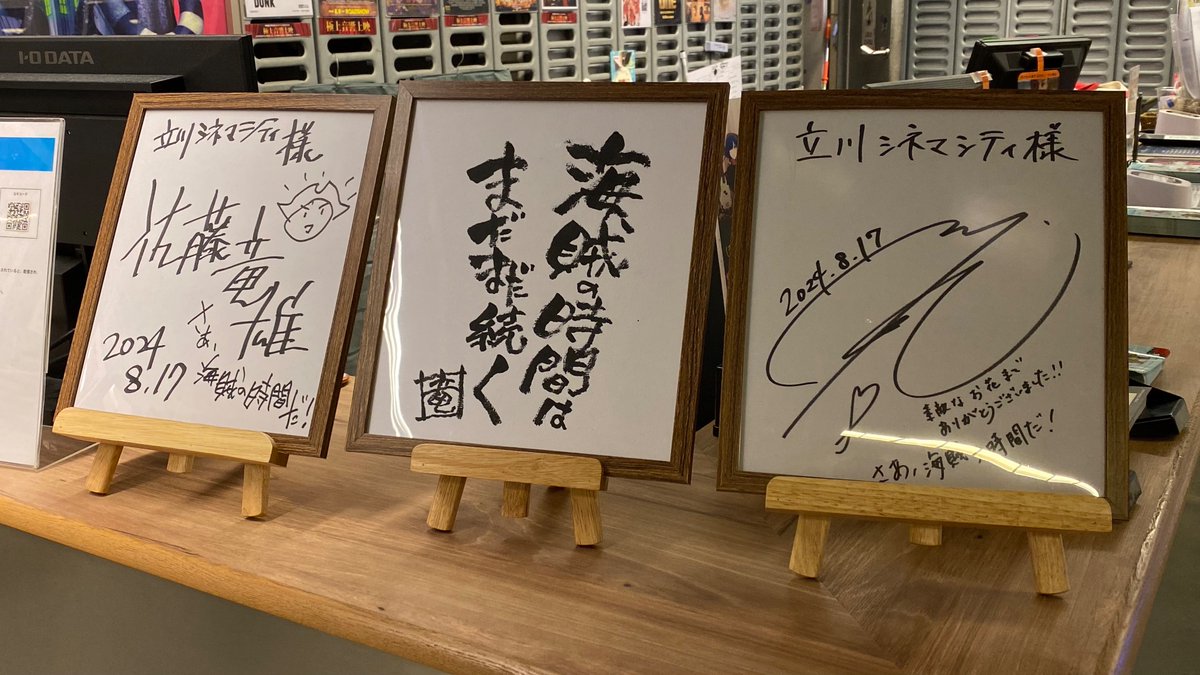 I-O DATA
DUNK
立川シネマシティ様
佐藤竜雄
2024
8.17
さあ、海賊の時間だ!
海賊の時間は
まだまだ続く
立川シネマシティ様
2024.8.17
素敵なお花まで
ありがとうございました!!
さあ、海賊の時間だ!